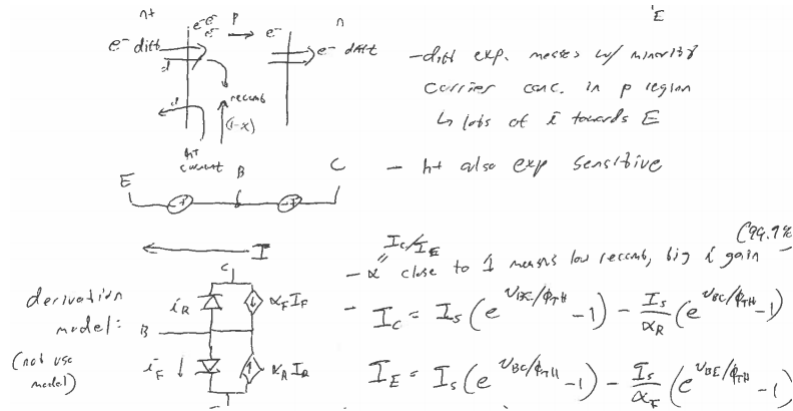 n+
e⁻ e⁻
e⁻
p
e⁻
n
e⁻ diff
e⁻ diff
recomb
(1-α)
h+
current
E
B
C
I
'E
- diff exp. messes w/ minority
carrier conc. in p region
↳ lots of i towards E
- h+ also exp sensitive
I_C/I_E
(99.9%
- α close to 1 means low recomb, big i gain
derivation
model:
(not use
model)
C
B
i_R
α_F I_F
i_F ↓
α_R I_R
- I_C = I_S (e^{v_BC/ϕ_TH} -1) - I_S/α_R (e^{v_BC/ϕ_TH} -1)
I_E = I_S (e^{v_BC/ϕ_TH} -1) - I_S/α_F (e^{v_BE/ϕ_TH} -1)